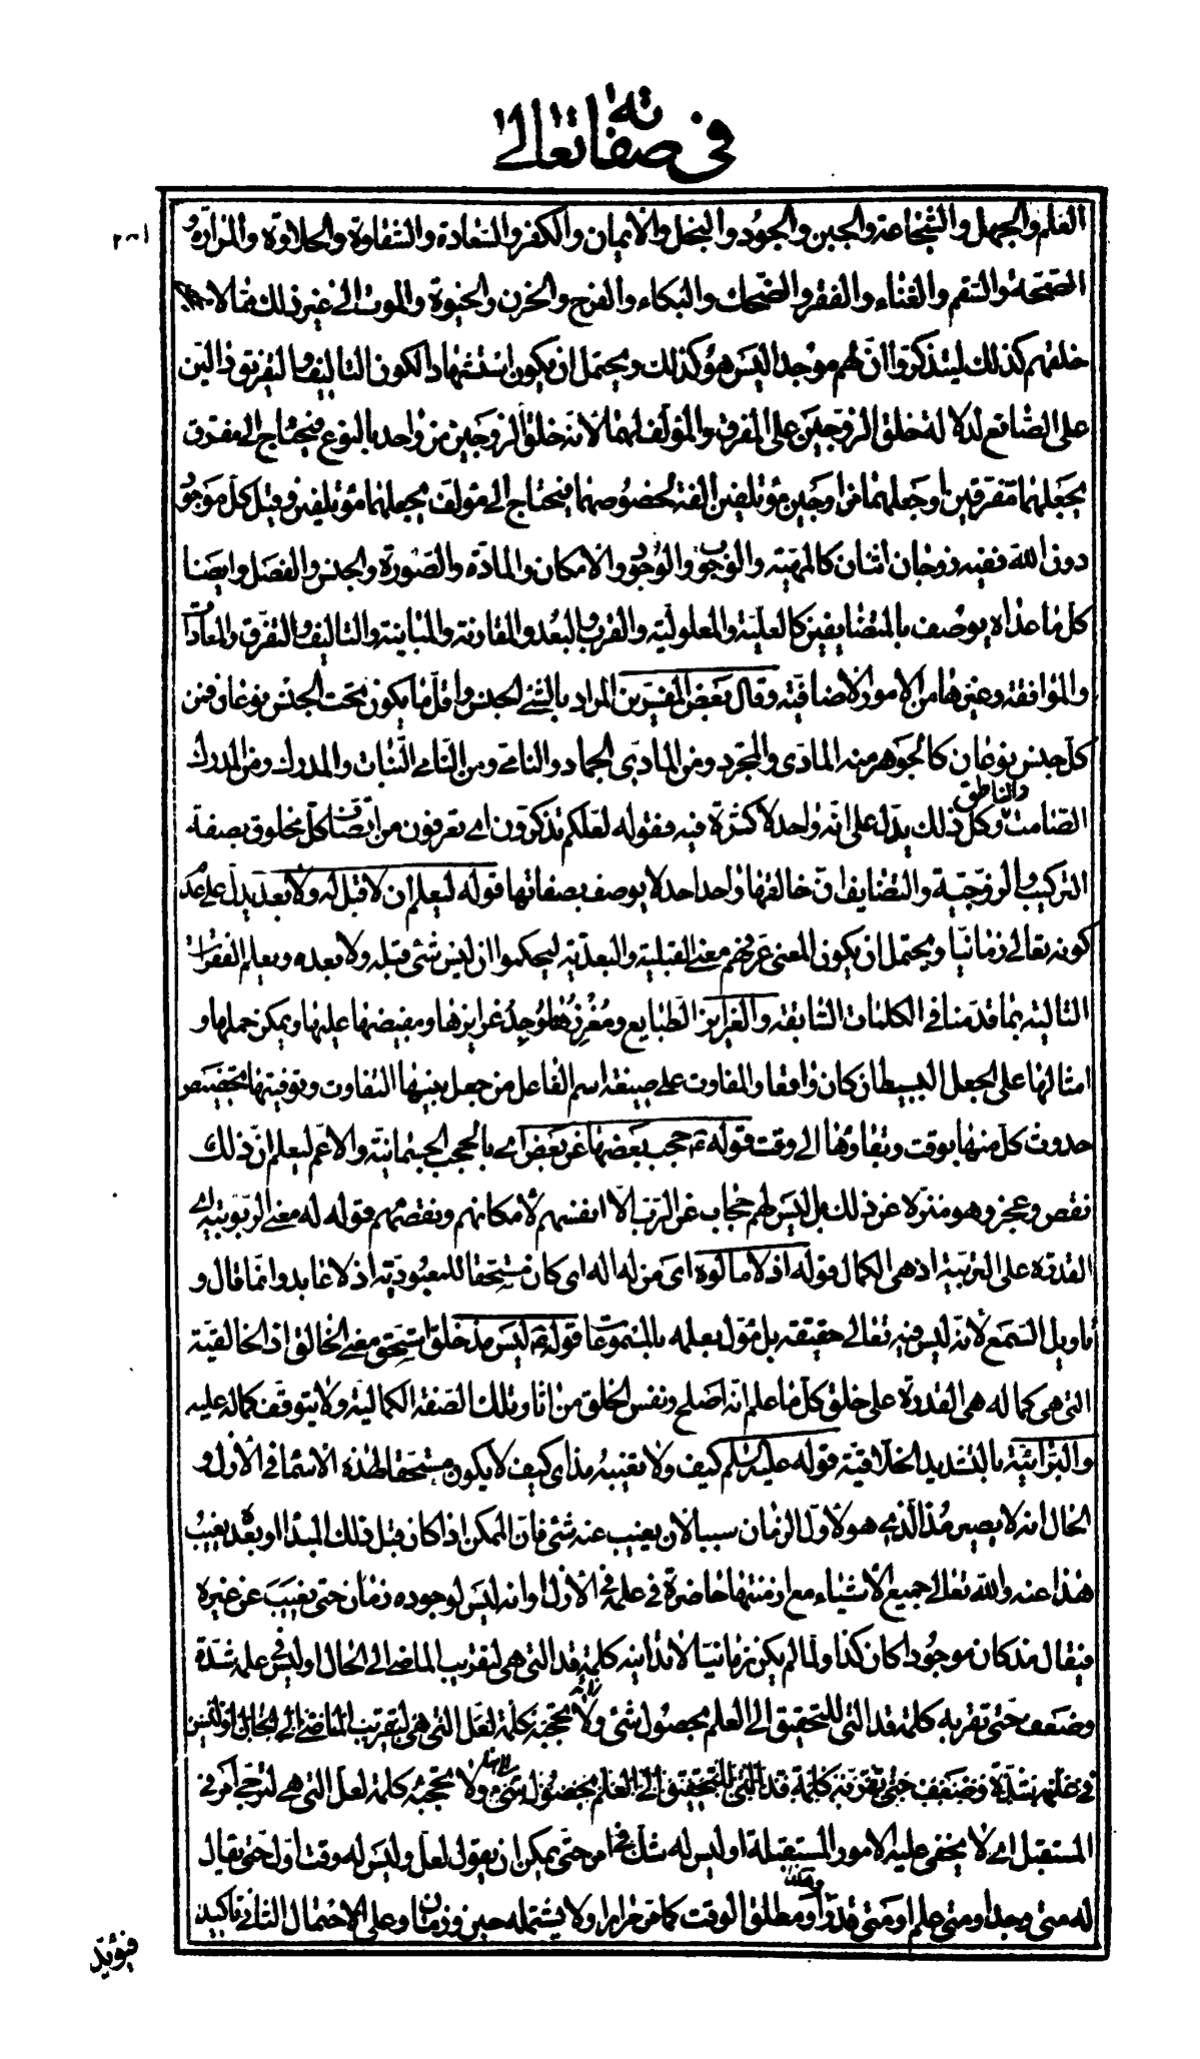 في صفاته تعالى
٢٠١
العلم والجهل والشجاعة والجبن والجود والبخل والايمان والكفر والسعادة والشقاوة والحلاوة والمرارة و
الصحة والسقم والغناء والفقر والضحك والبكاء والفرح والحزن والحيوة والموت الى غير ذلك مما لا
خلقهم كذلك ليتذكروا ان لهم موجد اليس هو كذلك ويحتمل ان يكون استشهادا لكون التاليف والتفريق دالين
على الصانع لدلالة خلق الزوجين على المفرق والمؤلف لهما لانه خلق الزوجين من واحد بالنوع فيحتاج الى مفرق
يجعلهما متفرقين او جعلهما مزاوجين مؤتلفين الفة لخصوصهما فيحتاج الى مؤلف يجعلهما مؤتلفين وقيل كل موجود
دون الله ففيه زوجان اثنان كالمهية والوجود والوجوب والامكان والمادة والصورة والجنس والفصل وايضا
كل ما عداه يوصف بالمتضايفين كالعلية والمعلولية والقرب والبعد والمقارنة والمباينة والتاليف والتفرق والمعاداة
والموافقة وغيرها من الامور الاضافية وقال بعض المفسرين المراد بالشئ الجنس واقل ما يكون تحت الجنس نوعان فمن
كل جنس نوعان كالجوهر منه المادى والمجرد ومن المادي الجماد والنامي ومن النامي النبات والمدرك ومن المدرك
الصامت والناطق وكل ذلك يدل على انه واحد لا كثرة فيه فقوله لعلكم تذكرون اي تعرفون من اتصاف كل مخلوق بصفة
التركيب والزوجية والتضايف ان خالقها واحد احد لا يوصف بصفاتها قوله ليعلم ان لا قبل له ولا بعد يدل على عدم
كونه تعالى زمانيا ويحتمل ان يكون المعنى عرفهم معنى القبلية والبعدية ليحكموا ان ليس شئ قبله ولا بعده ويعلم الفقرات
التالية بما قدمنا في الكلمات السابقة والغرايز الطبايع ومغرزها موجد غرايزها ومفيضها عليها ويمكن حملها و
امثالها على الجعل البسيط ان كان واقعا والمفاوت على صيغة اسم الفاعل من جعل بينها التفاوت وتوقيتها تخصيص
حدوث كل منها بوقت وبقاؤها الى وقت قوله ع حجب بعضها عن بعض اي بالحجب الجسمانية والاعم ليعلم ان ذلك
نقص وعجز وهو منزه عن ذلك بل ليس لهم حجاب عن الرب الا انفسهم لامكانهم ونقصهم قوله له معنى الربوبية اي
القدرة على التربية اذ هي الكمال قوله اذ لا مالوه اى من له اله اى كان مستحقا للمعبودية اذ لا عابد وانما قال و
تاويل السمع لانه ليس فيه تعالى حقيقة بل مؤل بعلمه بالمسموعات قوله ع ليس مذ خلق استحق معنى الخالق اذ الخالقية
التي هي كماله هي القدرة على خلق كل ما علم انه اصلح ونفس الخلق من اثار تلك الصفة الكمالية ولا يتوقف كماله عليه
والبرائية بالتشديد الخلاقية قوله عليه السلم كيف ولا تغيبه مذ اى كيف لا يكون مستحقا لهذه الاسماء في الازل و
الحال انه لا يصير مذ الذي هو لاول الزمان سببا لان يغيب عنه شئ فان الممكن اذا كان قبل ذلك المبدا او بعده يغيب
هذا عنه والله تعالى جميع الاشياء مع ازمنتها حاضرة في علمه في الازل او انه ليس لوجوده زمان حتى يغيب عن غيره
فيقال مذ كان موجودا كان كذا ولما لم يكن زمانيا لا تدانيه كلمة قد التى هى لتقريب الماضي الى الحال او ليس في علمه شدة
وضعف حتى تقربه كلمة قد التى للتحقيق الى العلم بحصول شئ ولا تحجبه كلمة لعل التى هي لتقريب الماضي الى الحال او ليس
في علمه شدة وضعف حتى تقربه كلمة قد التى للتحقيق الى العلم بحصول شئ ولا تحجبه كلمة لعل التى هي لترجي امر في
المستقبل اي لا يخفى عليه الامور المستقبلة او ليس له شك في امر حتى يمكن ان يقول لعل وليس له وقت اول حتى يقال
له متى وجد او متى علم او متى قدر او مطلق الوقت كما مر مرارا ولا يشتمله حين وزمان وعلى الاحتمال الثاني تاكيد
فيؤيد